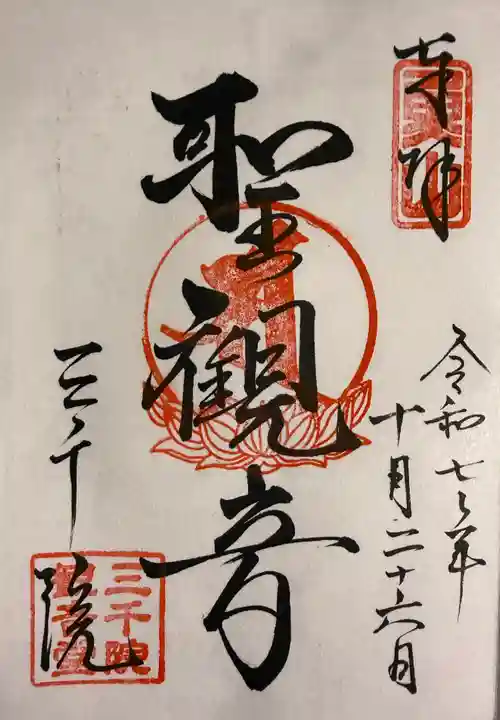 奉拝
令和七年
十月二十六日
聖觀音
三千院
三千院